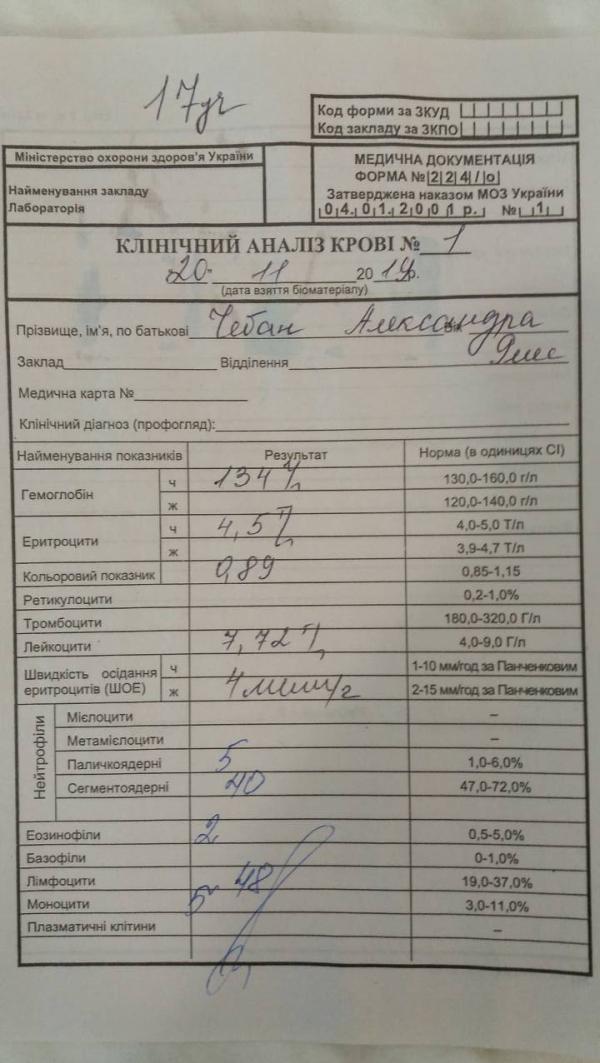 17
Код форми за ЗКУД
Код закладу за ЗКПО
Міністерство охорони здоров'я України
Найменування закладу
Лабораторія
МЕДИЧНА ДОКУМЕНТАЦІЯ
ФОРМА № 2 2 4 / о
Затверджена наказом МОЗ України
0 4. 0 1. 2 0 0 1 р. № 1
КЛІНІЧНИЙ АНАЛІЗ КРОВІ № 1
20 11 2019р.
(дата взяття біоматеріалу)
Прізвище, ім'я, по батькові Чебан Александра
Заклад Відділення 9мес
Медична карта №
Клінічний діагноз (профогляд):
Найменування показників Результат Норма (в одиницях СІ)
Гемоглобін ч 134 130,0-160,0 г/л
ж 120,0-140,0 г/л
Еритроцити ч 4,5 4,0-5,0 Т/л
ж 3,9-4,7 Т/л
Кольоровий показник 0,89 0,85-1,15
Ретикулоцити 0,2-1,0%
Тромбоцити 180,0-320,0 Г/л
Лейкоцити 7,72 4,0-9,0 Г/л
Швидкість осідання еритроцитів (ШОЕ) ч 1-10 мм/год за Панченковим
ж 4 мм/г 2-15 мм/год за Панченковим
Нейтрофіли
Мієлоцити –
Метамієлоцити –
Паличкоядерні 5 1,0-6,0%
Сегментоядерні 40 47,0-72,0%
Еозинофіли 2 0,5-5,0%
Базофіли 0-1,0%
Лімфоцити 48 19,0-37,0%
Моноцити 5 3,0-11,0%
Плазматичні клітини –